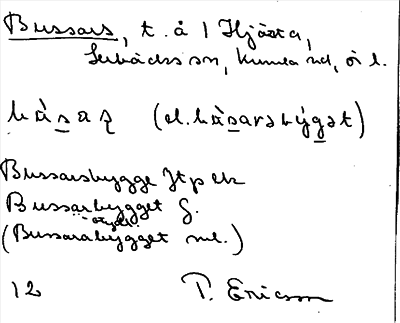 Bussars, t. å 1 Hjässta,
Lerbäcks sn, Kumla hd, Ör l.
bὰs̲aʐ (el. bὰs̲arsbýg̲ət)
Bussarsbygge Jtp ek
Bussarbygget G.
otydl.
(Bussarabygget ml.)
12 T. Ericsson